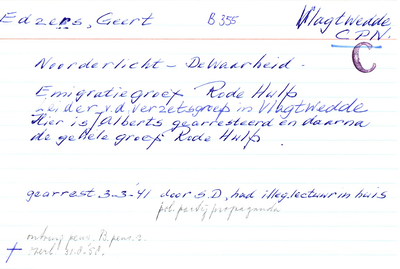 Edzens, Geert B 355 Vlagtwedde
C.P.N.
C
Noorderlicht - De Waarheid.
Emigratiegroep Rode Hulp
Leider v.d. verzetsgroep in Vlagtwedde
Hier is Alberts gearresteerd en daarna
de gehele groep Rode Hulp.
gearrest. 3-3-'41 door S.D. had illeg. lectuur in huis
pol. partij propaganda
ontving pens. B. pens.
overl. 31-8-'58.